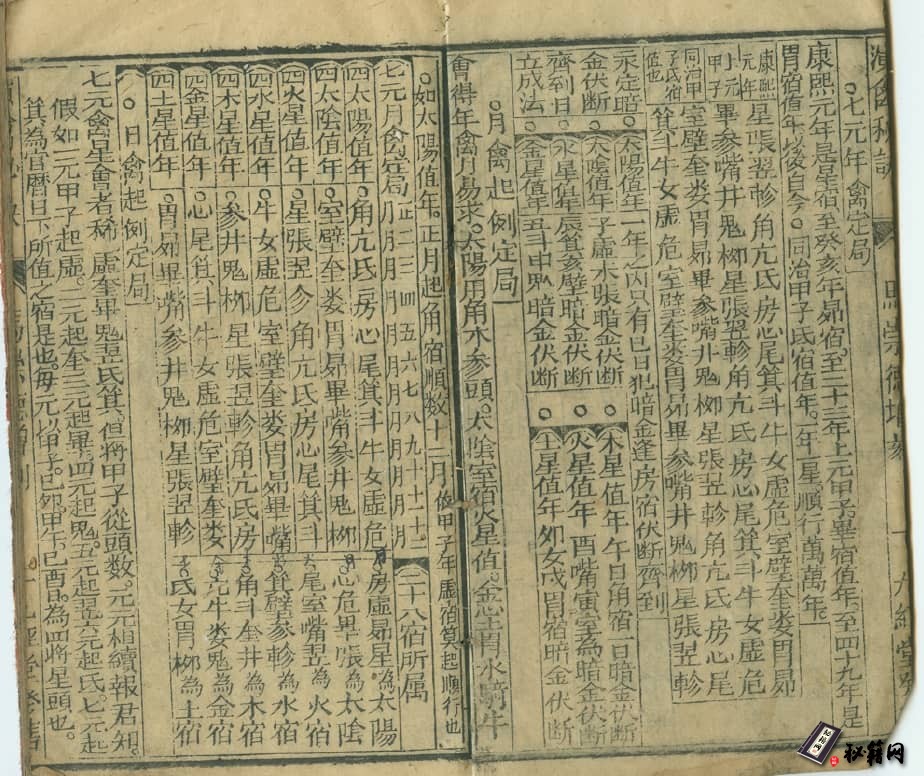 七元年禽定局
康熙元年是星宿至癸亥年昴宿。至二十三年上元甲子畢宿值年。至四十九年是
胃宿值年。以後自今。同治甲子氐宿值年。一年一星順行萬萬年。
康熙元年 星張翌軫角亢氐房心尾箕斗牛女虛危室壁奎娄胃昴
小元甲子 畢參嘴井鬼柳星張翌軫角亢氐房心尾箕斗牛女虛危
同治甲子氐宿值也 室壁奎娄胃昴畢參嘴井鬼柳星張翌軫角亢氐房心尾
箕斗牛女虛危室壁奎娄胃昴畢參嘴井鬼柳星張翌軫
永定暗金伏断齊到日立成法
太陽值年一年之內只有巳日犯暗金逢房宿伏断齊到
太陰值年子虛未張暗金伏断
水星值年辰箕亥壁暗金伏断
金星值年丑斗申鬼暗金伏断
木星值年午日用宿一日暗金伏断
火星值年酉嘴寅室為暗金伏断
土星值年夘女戌胃宿暗金伏断
月禽起例定局
會得年禽月易求。太陽用角木參頭。太陰室宿火星值。金心土胃水騎牛
如太陽值年。正月起角宿順数十二月 假甲子年虛宿算起順行也
七元月禽定局 正月 二月 三月 四月 五月 六月 七月 八月 九月 十月 十一 十二
四太陽值年 角亢氐房心尾箕斗牛女虛危
四太陰值年 室壁奎娄胃昴畢嘴參井鬼柳
四火星值年 星張翌軫角亢氐房心尾箕斗
四水星值年 牛女虛危室璧奎娄胃昴畢嘴
四木星值年 參井鬼柳星張翌軫角亢氐房
四金星值年 心尾箕斗牛女虛危室壁奎娄
四土星值年 胃昴畢嘴參井鬼柳星張翌軫
二十八宿所属
房虛昴星為太陽
心危畢張為太陰
尾室嘴翌為火宿
箕壁參軫為水宿
角斗奎井為木宿
亢牛娄鬼為金宿
氐女胃柳為土宿
日禽起例定局
七元禽星會者稀。虛奎畢鬼翌氐箕。但將甲子從頭数。元元相續報君知。
假如一元甲子起虛。二元起奎三元起畢。四元起鬼。五元起翌。六元起氐。七元起
箕為官曆日下所值之宿是也。每元以甲子。己夘。甲午。己酉。為四將星頭也。
秘籍网